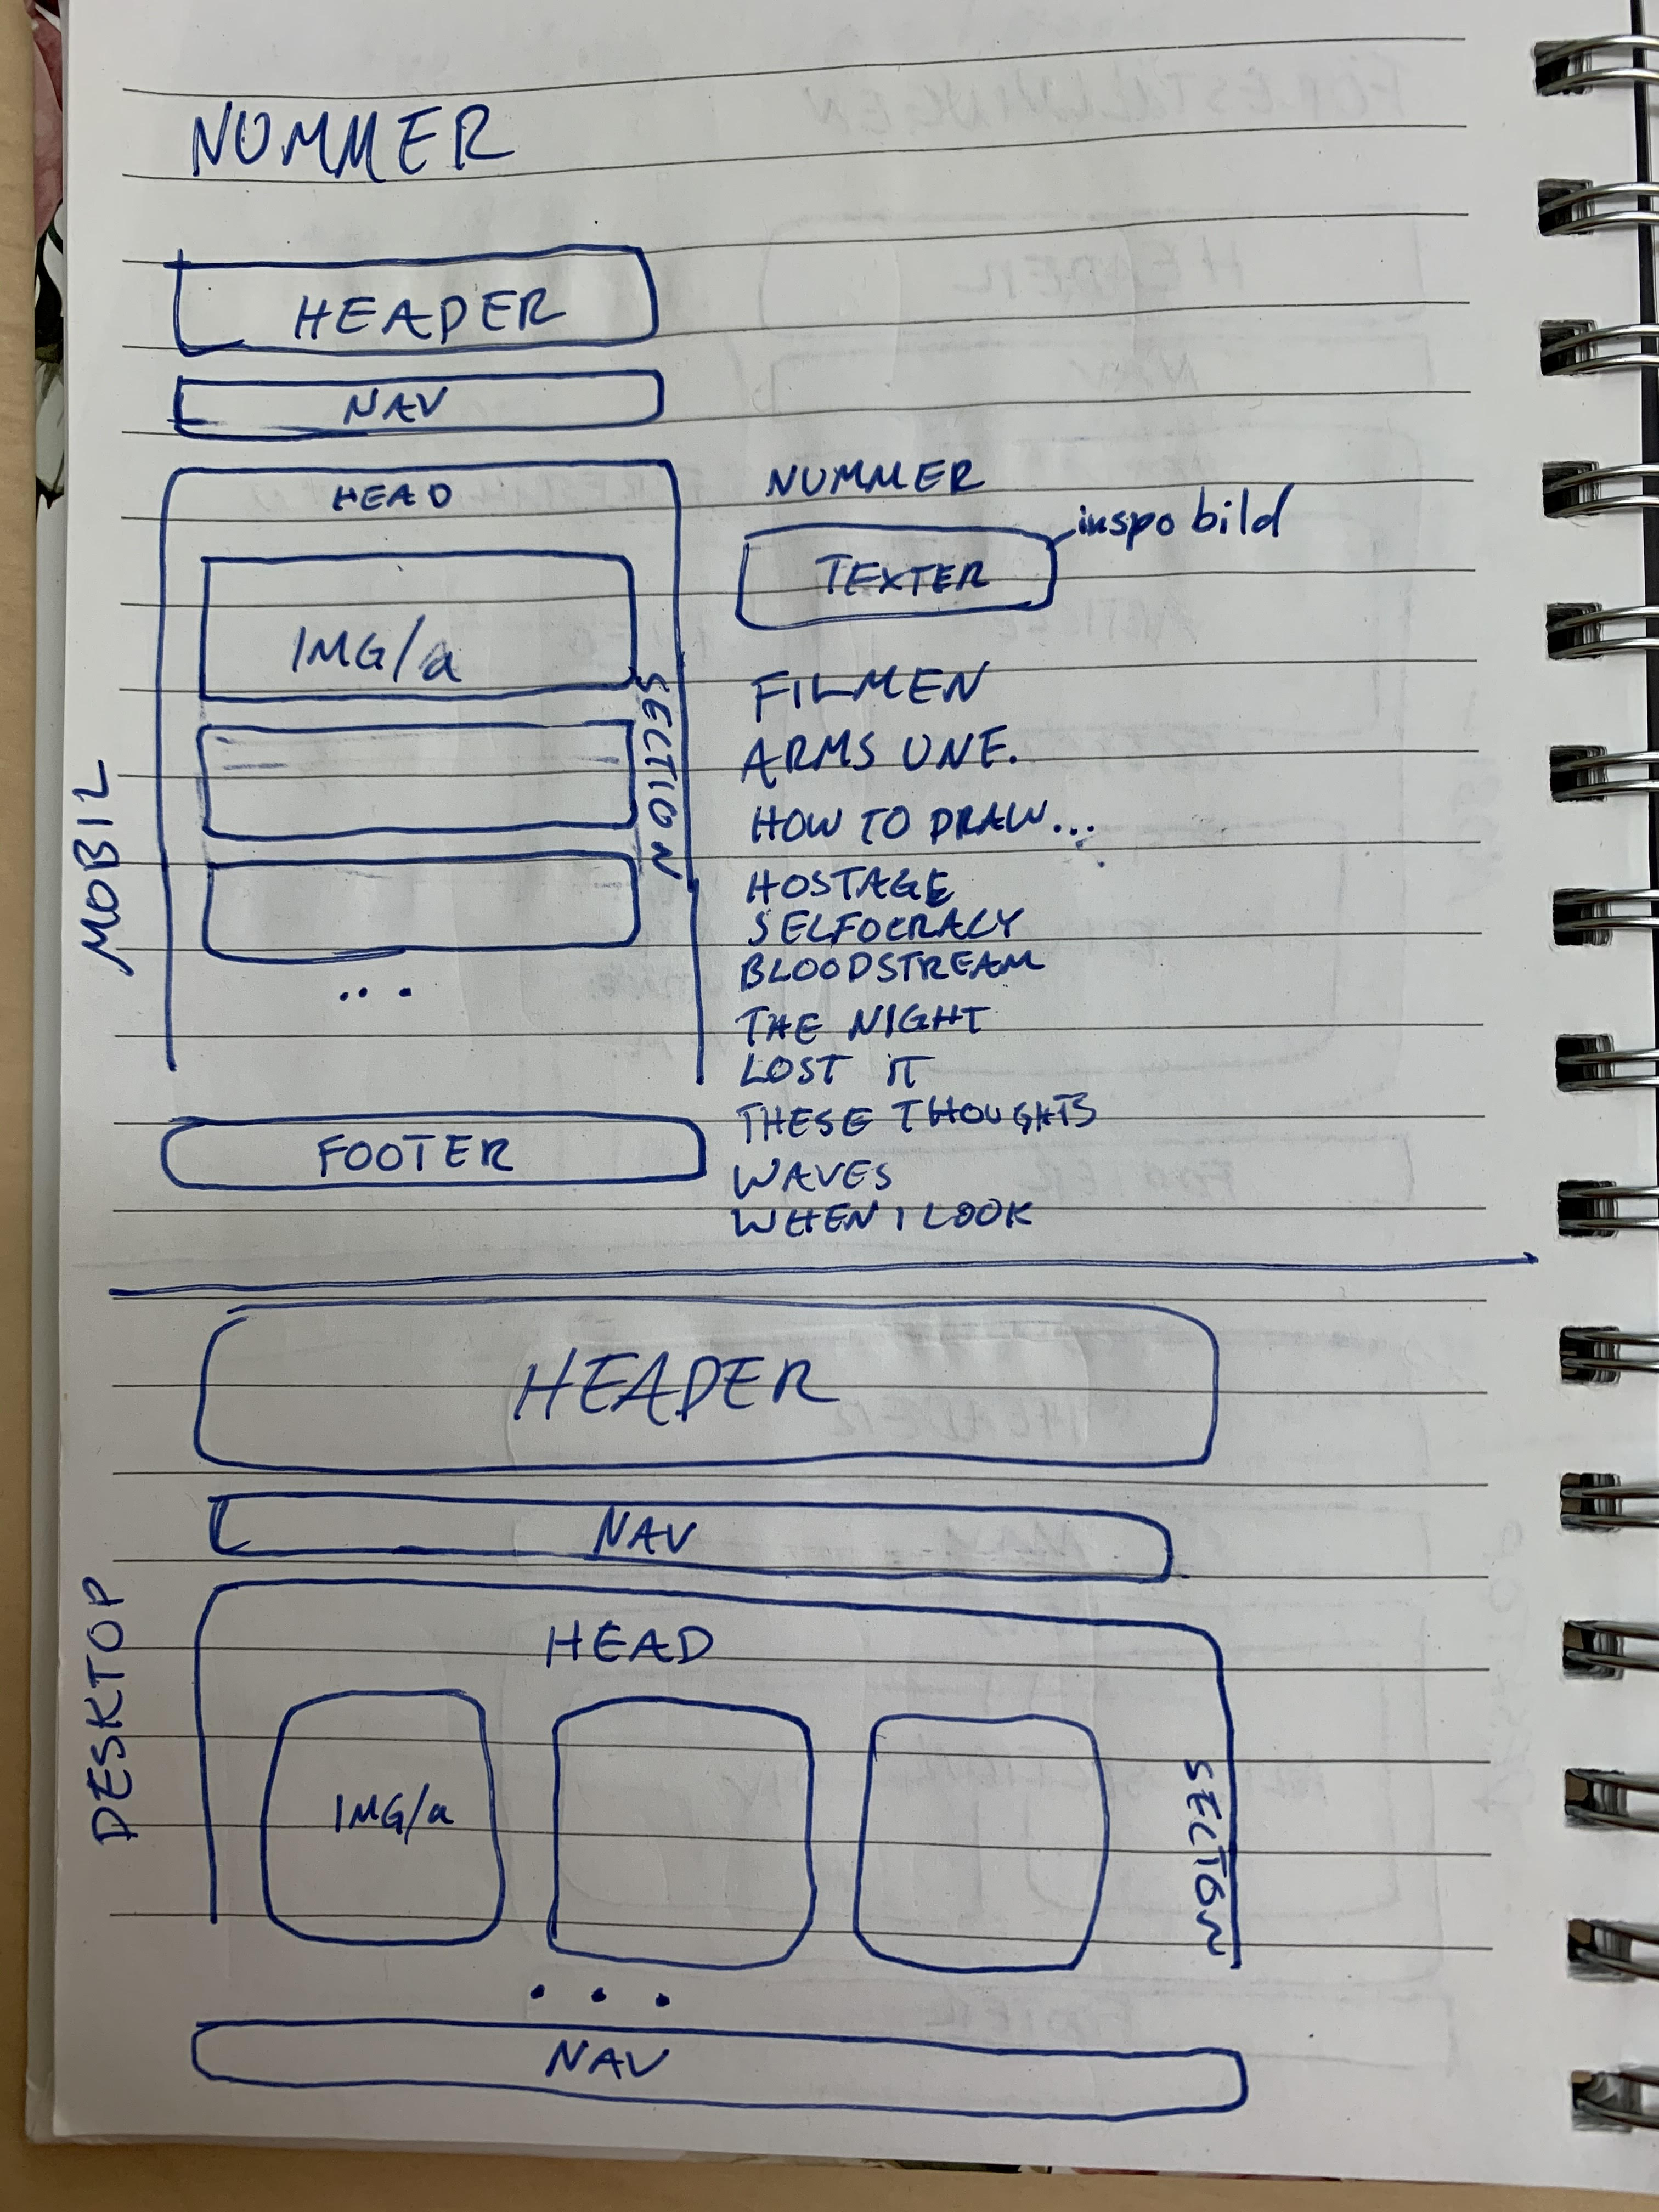 NUMMER
HEADER
NAV
HEAD
IMG/a
SECTION
...
FOOTER
MOBIL
NUMMER
inspo bild
TEXTER
FILMEN
ARMS UNE.
HOW TO DRAW...
HOSTAGE
SELFOCRACY
BLOODSTREAM
THE NIGHT
LOST IT
THESE THOUGHTS
WAVES
WHEN I LOOK
HEADER
NAV
HEAD
IMG/a
SECTION
...
NAV
DESKTOP